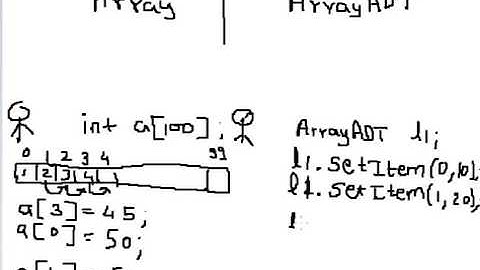 Array
ArrayADT
int a[100];
0 1 2 3 4 99
1 2 3 4
a[3] = 45;
a[0] = 50;
ArrayADT l1;
l1.SetItem(0,10);
l1.SetItem(1,20);
l